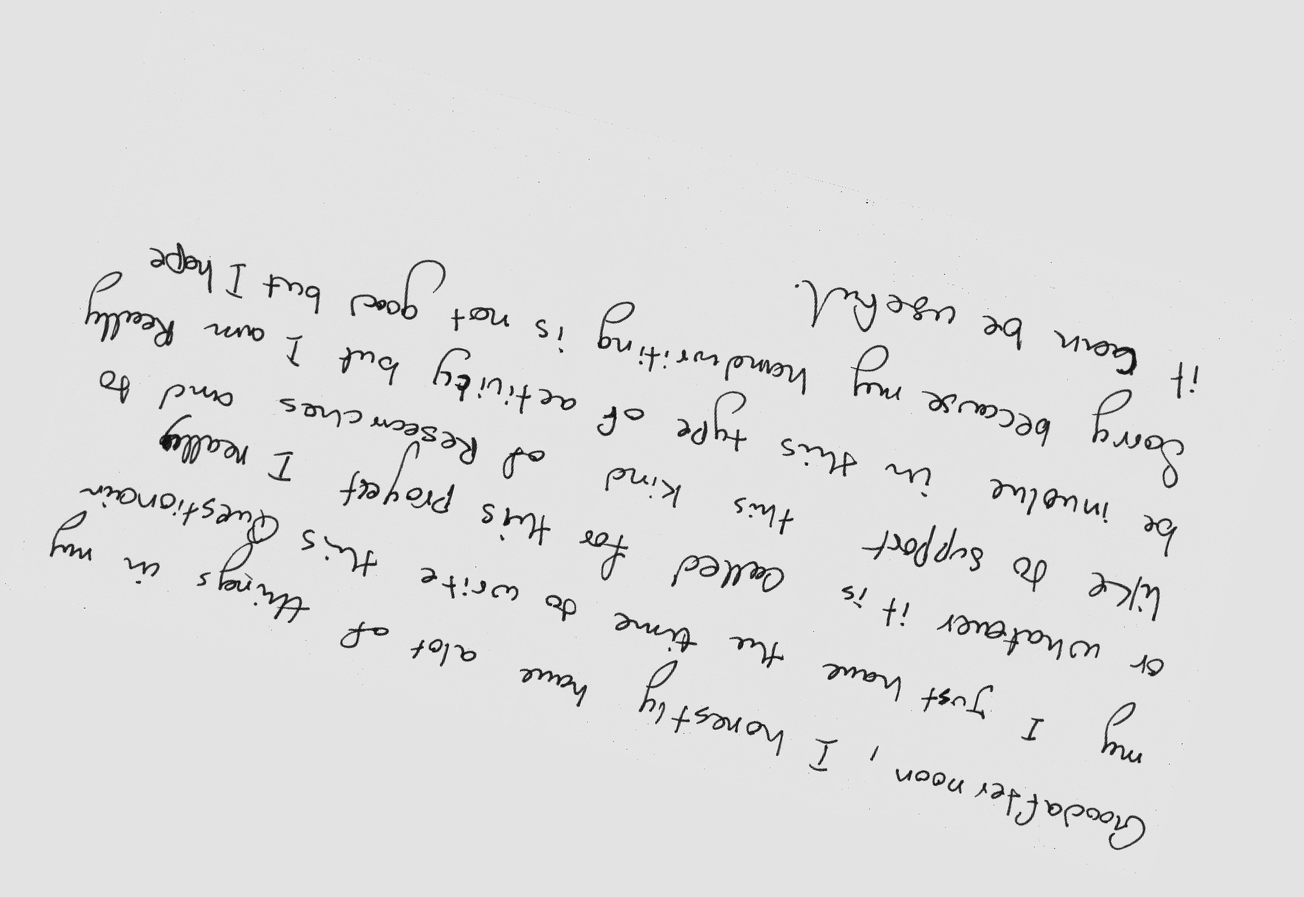 Goodafter noon, I honestly have alot of things in my
my I Just have the time to write this Questionair
or whatever it is called for this proyect I really
like to support this kind of Researches and to
be involve in this type of activity but I am Really
Sorry because my handwriting is not good but I hope
it can be useful.